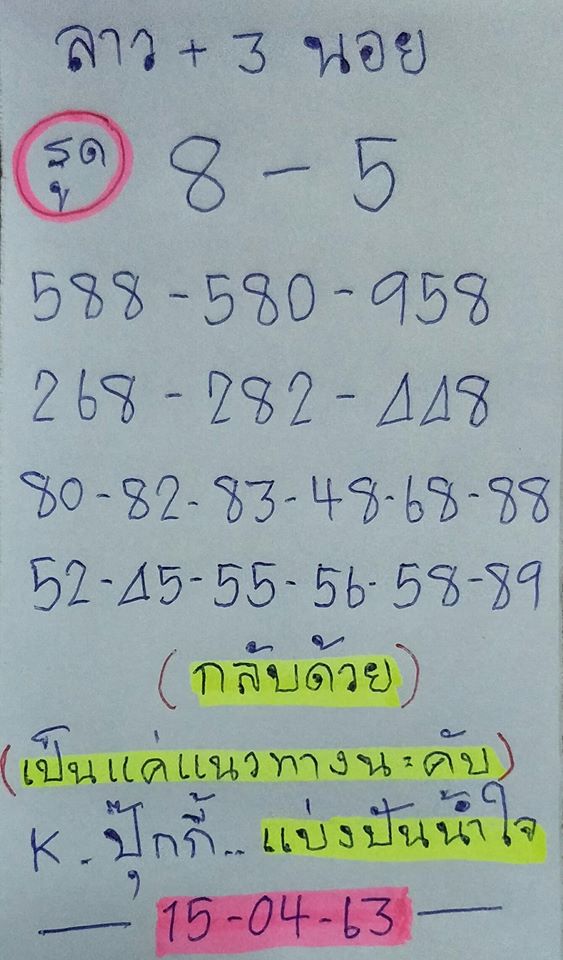 ลาว + 3 นอย
รูด 8 - 5
588 - 580 - 958
268 - 282 - 448
80 - 82 - 83 - 48 - 68 - 88
52 - 45 - 55 - 56 - 58 - 89
(กลับด้วย)
(เป็นแค่แนวทางนะคับ)
K. ปุ๊กกี้.. แบ่งปันน้ำใจ
15-04-63